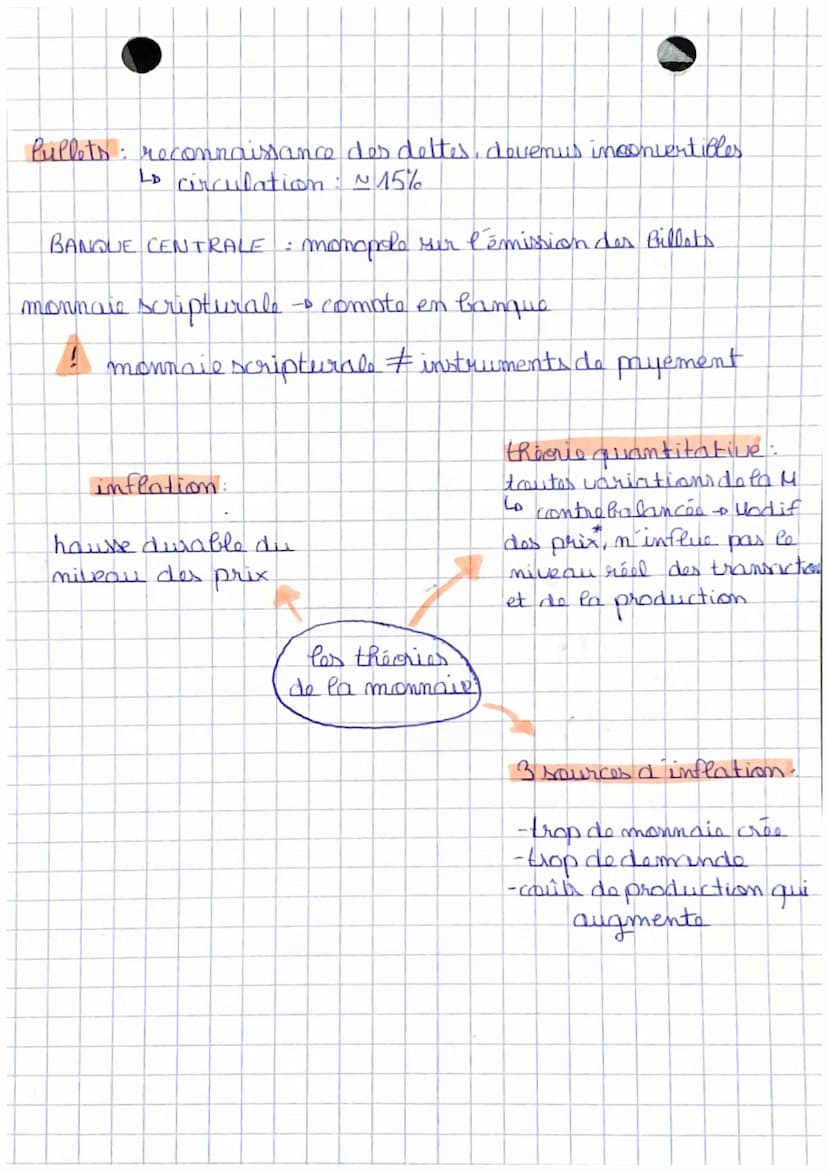 Billets : reconnaissance des dettes, devenus inconvertibles
↳ circulation : ≈ 15%
BANQUE CENTRALE : monopole sur l'émission des billets
monnaie scripturale → compte en banque
! monnaie scripturale ≠ instruments de payement
théorie quantitative :
toutes variations de la M
↳ contrebalancée →
des prix*, n'influe pas le
niveau réel des transaction
et de la production
inflation :
hausse durable du
niveau des prix
les théories
de la monnaie
3 sources d'inflation :
- trop de monnaie crée
- trop de demande
- coûts de production qui
augmente